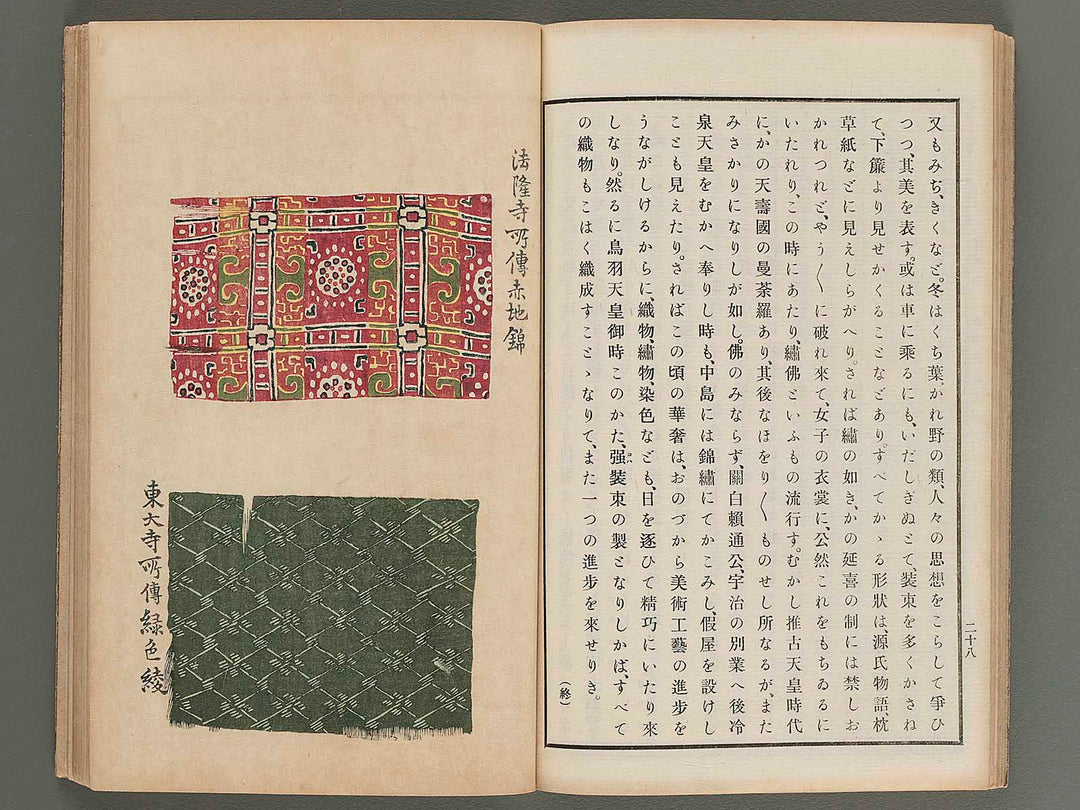 又もみぢ、きくなど。冬はくち葉、かれ野の類、人々の思想をこらして爭ひ
つつ、其美を表す。或は車に乘るにも、いだしぎぬとて、裝束を多くかさね
て、下簾より見せかくることなどあり。すべてかゝる形狀は、源氏物語枕
草紙などに見えしらがへり。されば繡の如き、かの延喜の制には禁しお
かれつれど、やう〱に破れ來て、女子の衣裳に、公然これをもちゐるに
いたれり、この時にあたり、繡佛といふもの流行す。むかし推古天皇時代
に、かの天壽國の曼荼羅あり、其後なほをり〱ものせし所なるが、また
みさかりになりしが如し。佛のみならず、關白賴通公、宇治の別業へ後冷
泉天皇をむかへ奉りし時も、中島には錦繡にてかこみし、假屋を設けし
ことも見えたり。さればこの頃の華奢は、おのづから美術工藝の進步を
うながしけるからに、織物、繡物、染色なども、日を逐ひて精巧にいたり來
しなり。然るに鳥羽天皇御時このかた、强裝束の製となりしかば、すべて
の織物もこはく織成すことゝなりて、また一つの進步を來せりき。
(終)
二十八
法隆寺所傳赤地錦
東大寺所傳緑色綾